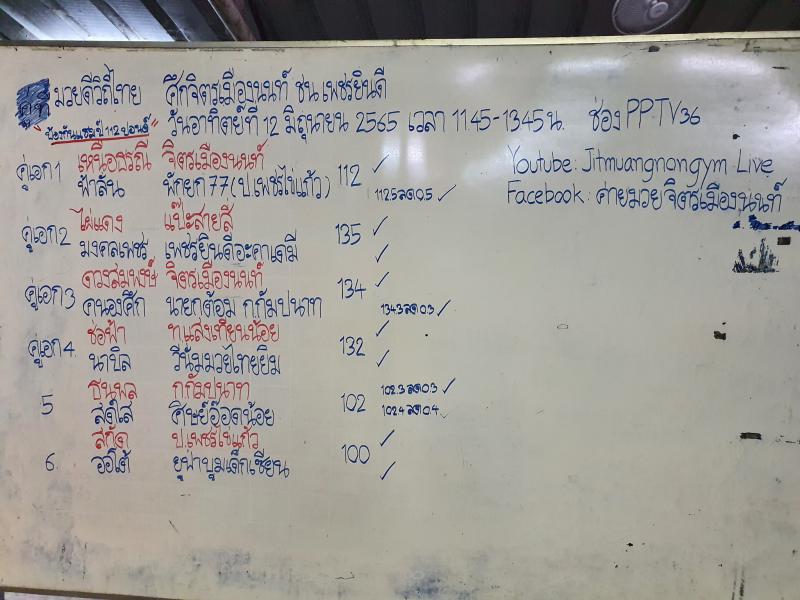 มวยดีวิถีไทย ศึกจิตรเมืองนนท์ ชน เพชรยินดี
วันอาทิตย์ที่ 12 มิถุนายน 2565 เวลา 11.45-13.45 น. ช่อง PPTV36
"ป้องกันแชมป์ 112 ปอนด์"
Youtube: Jitmuangnongym Live
Facebook: ค่ายมวยจิตรเมืองนนท์
คู่เอก 1 เหนือธรณี จิตรเมืองนนท์ 112 ✓
ฟ้าลั่น พักยก77(ป.เพชรไข่แก้ว) 112.5 ลด 0.5 ✓
คู่เอก 2 ไผ่แดง แป๊ะสายสี่ 135 ✓
มงคลเพชร เพชรยินดีอะคาเดมี ✓
คู่เอก 3 ดวงสมพงษ์ จิตรเมืองนนท์ 134 ✓
คนองศึก นายกต้อม ก.กัมปนาท 134.3 ลด 0.3 ✓
คู่เอก 4. ช่อฟ้า ท.แสงเทียนน้อย 132 ✓
นาบิล วีนั่มมวยไทยยิม ✓
5 ธนพล ก.กัมปนาท 102 102.3 ลด 0.3 ✓
สดใส ศิษย์อ๊อดน้อย 102.4 ลด 0.4 ✓
6. สกัด ป.เพชรไข่แก้ว 100 ✓
ออโต้ ยูฟ่าบูมเด็กเซียน ✓